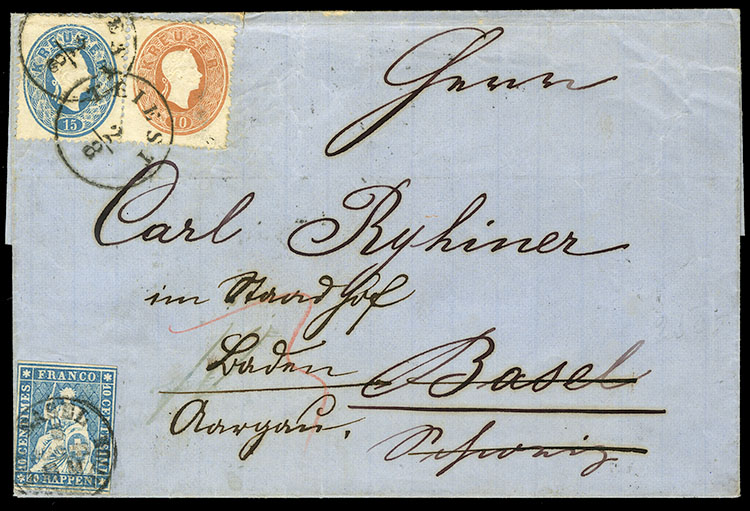 KREUZER
15
KREUZER
10
TRIEST
2/8
Herrn
Carl Ryhiner
im Staadhof
Baden
Basel
Aargau.
Schweiz
FRANCO
10 CENTIMES
40 CENTESIMI
10 RAPPEN